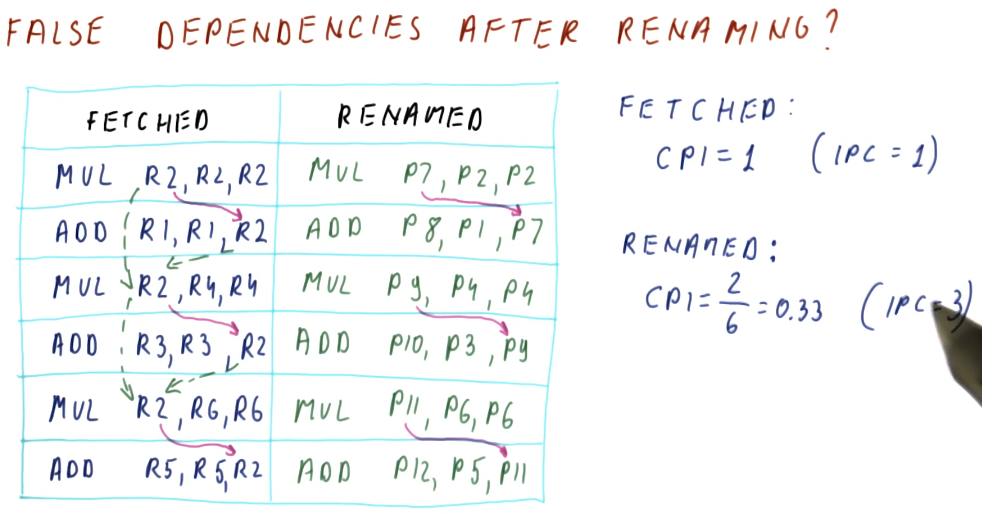 FALSE DEPENDENCIES AFTER RENAMING?
FETCHED RENAMED
MUL R2, R2, R2 MUL P7, P2, P2
ADD R1, R1, R2 ADD P8, P1, P7
MUL R2, R4, R4 MUL P9, P4, P4
ADD R3, R3, R2 ADD P10, P3, P9
MUL R2, R6, R6 MUL P11, P6, P6
ADD R5, R5, R2 ADD P12, P5, P11
FETCHED:
CPI = 1 (IPC = 1)
RENAMED:
CPI = 2/6 = 0.33 (IPC = 3)